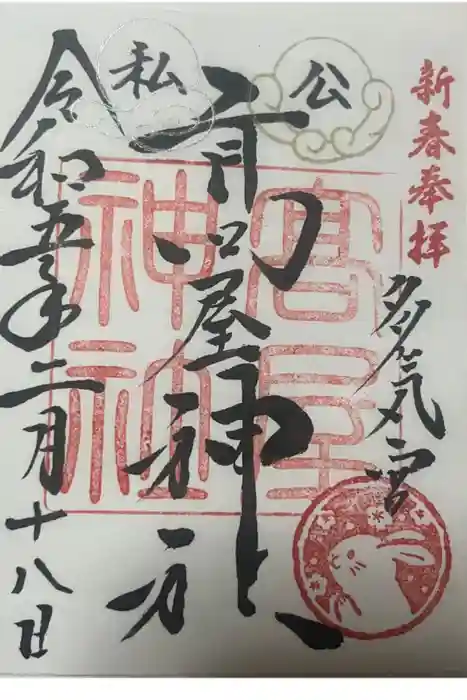 新春奉拝
多気宮
公
高屋神社
髙屋
神社
私
令和五年二月十八日